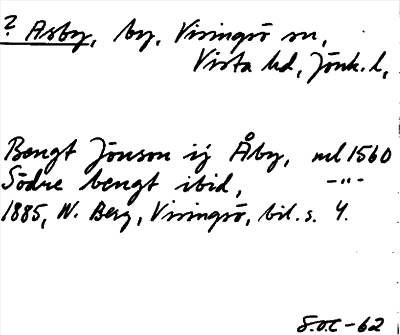 ? Åsby, by, Visingsö sn,
Vista hd, Jönk. l,
Bengt Jönson ij Åby, ml 1560
Södre bengt ibid, -"-
1885, W. Berg, Visingsö, bil. s. 4.
S.O.C -62